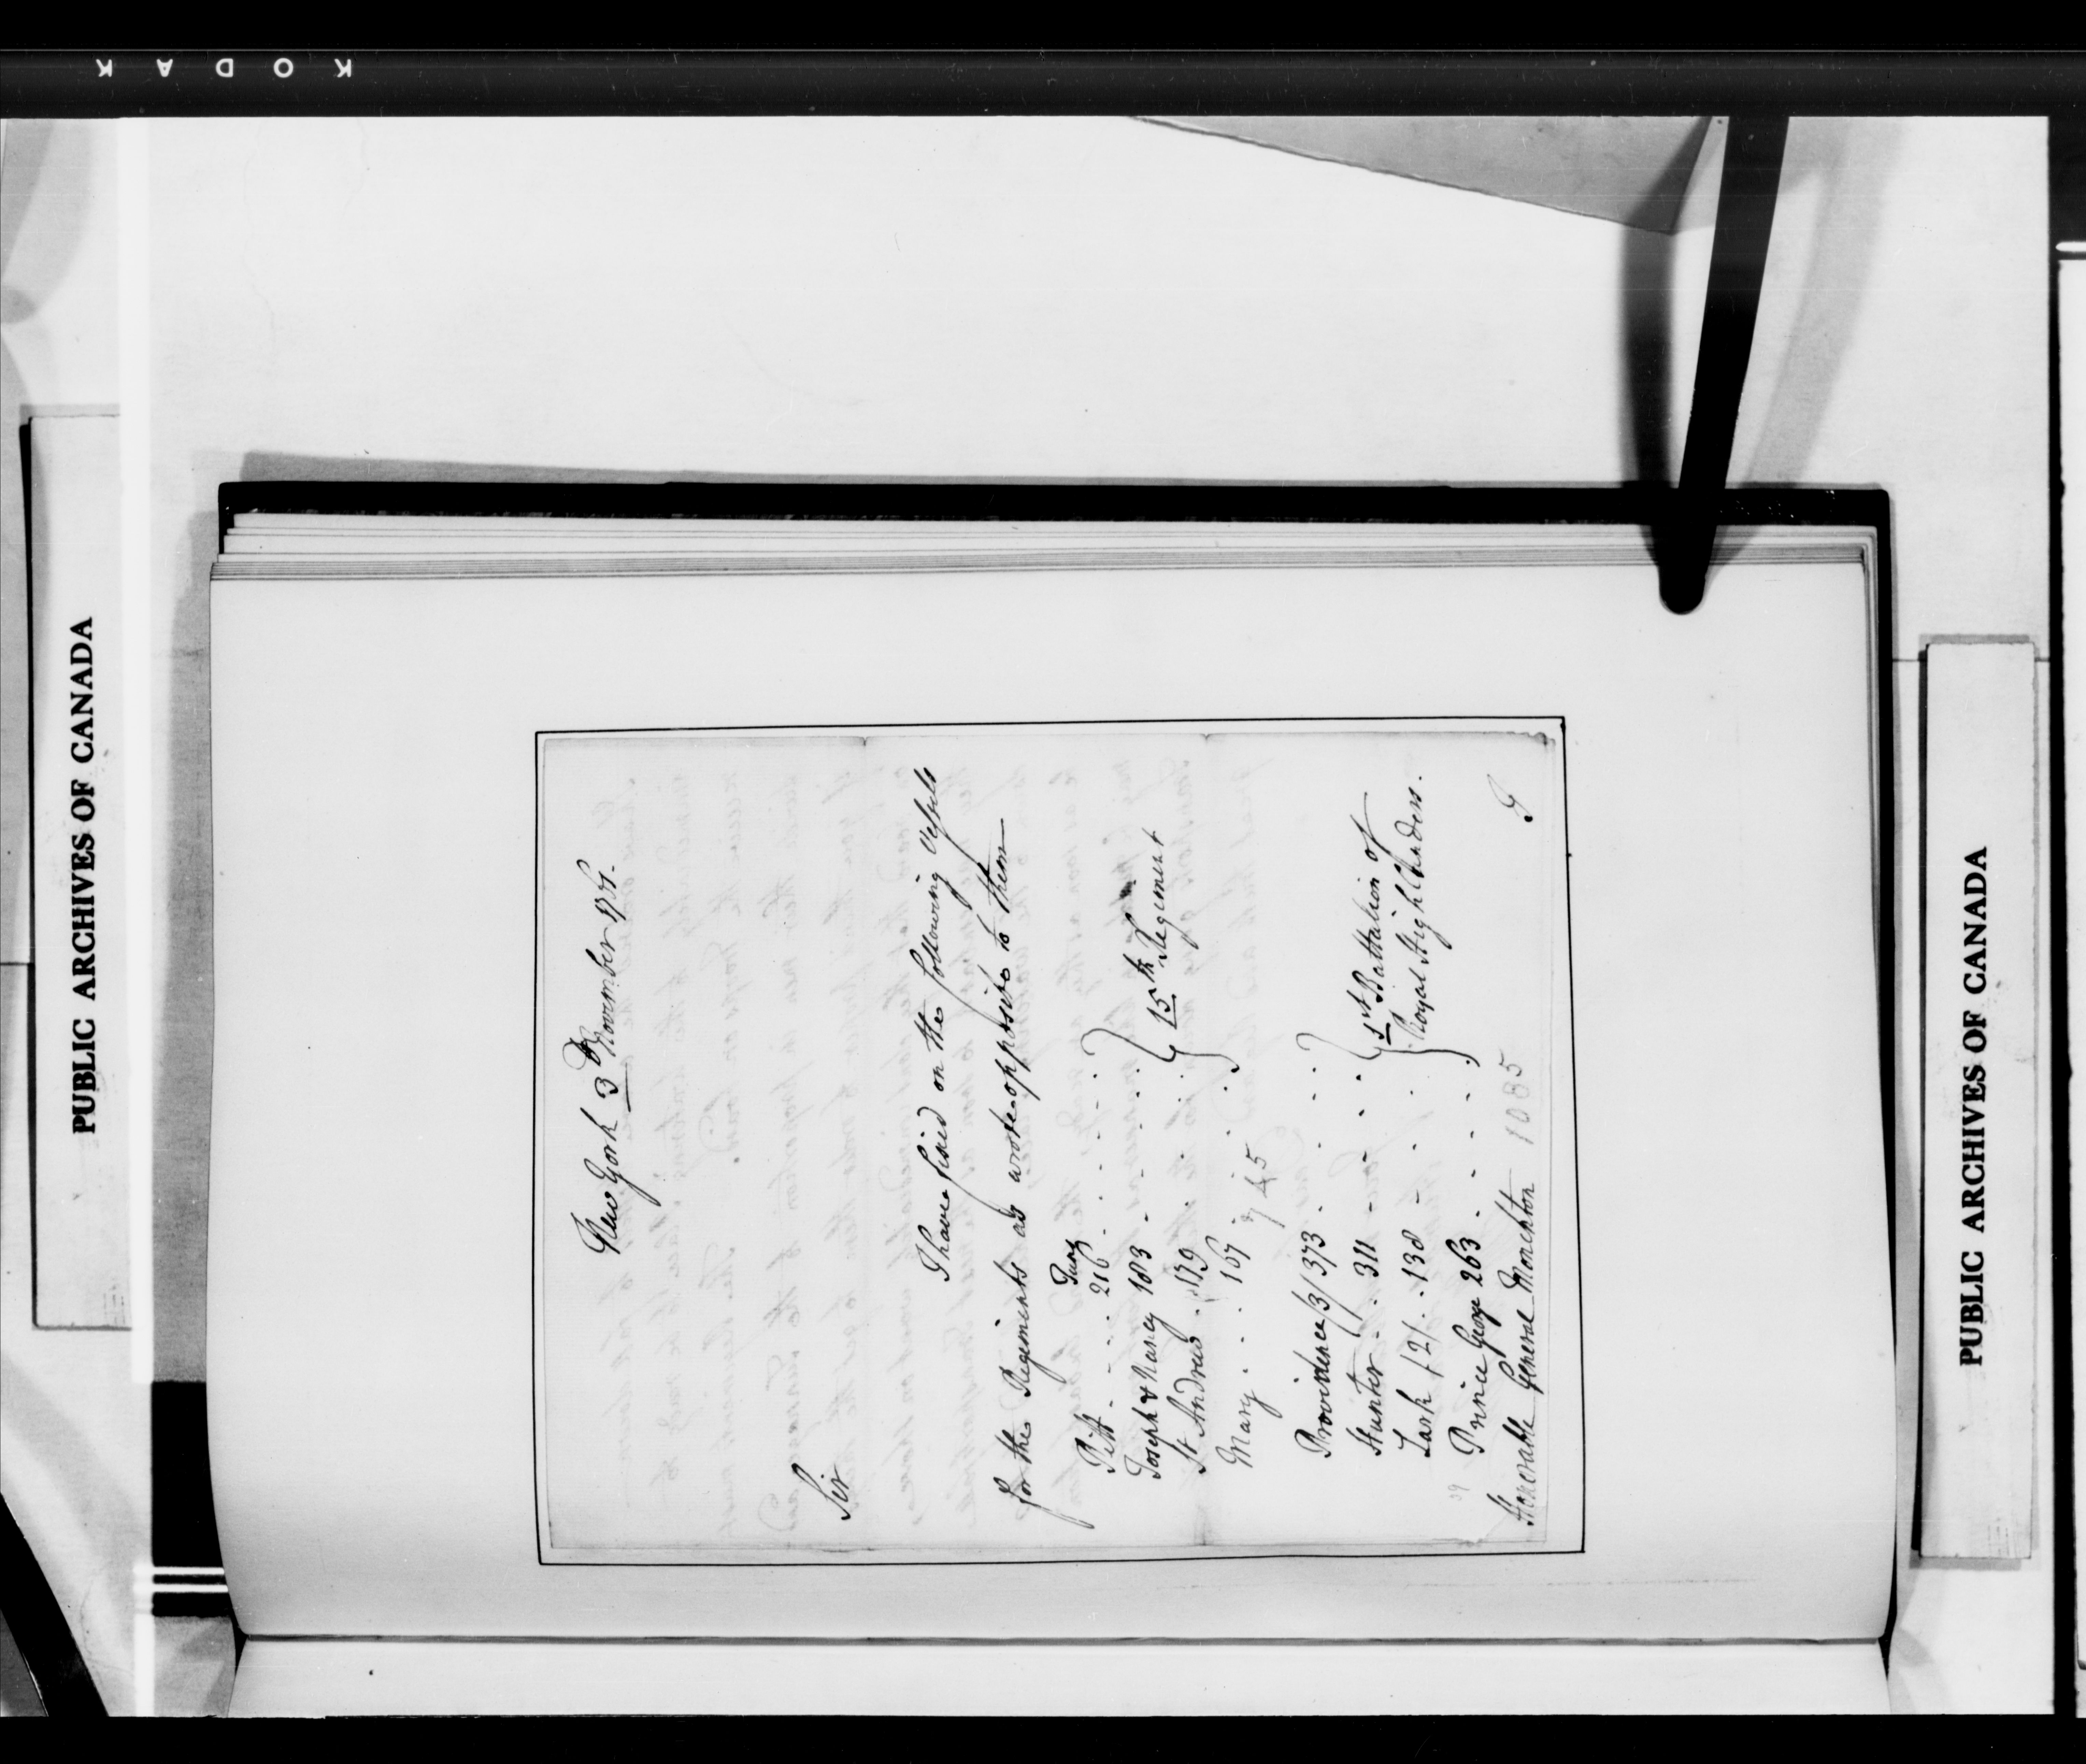 KODAK
PUBLIC ARCHIVES OF CANADA
New York 3d November 1761.
Sir
I have fixed on the following Vessels
for the Regiments as wrote opposite to them
Tuns
Pitt - - - - 216 - - - - -
Joseph & Nancy 183 - - - -
St Andrew - 179 - - - -
Mary - - - 167 - - - -
15th Regiment
745
Providence (3) 373 - - - -
Hunter - - 311 - - - -
Lark (2) - - 138 - - - -
Prince George 263 - - - -
1st Battalion of
Royal Highlanders.
39
Honorable General Monckton 1085
PUBLIC ARCHIVES OF CANADA